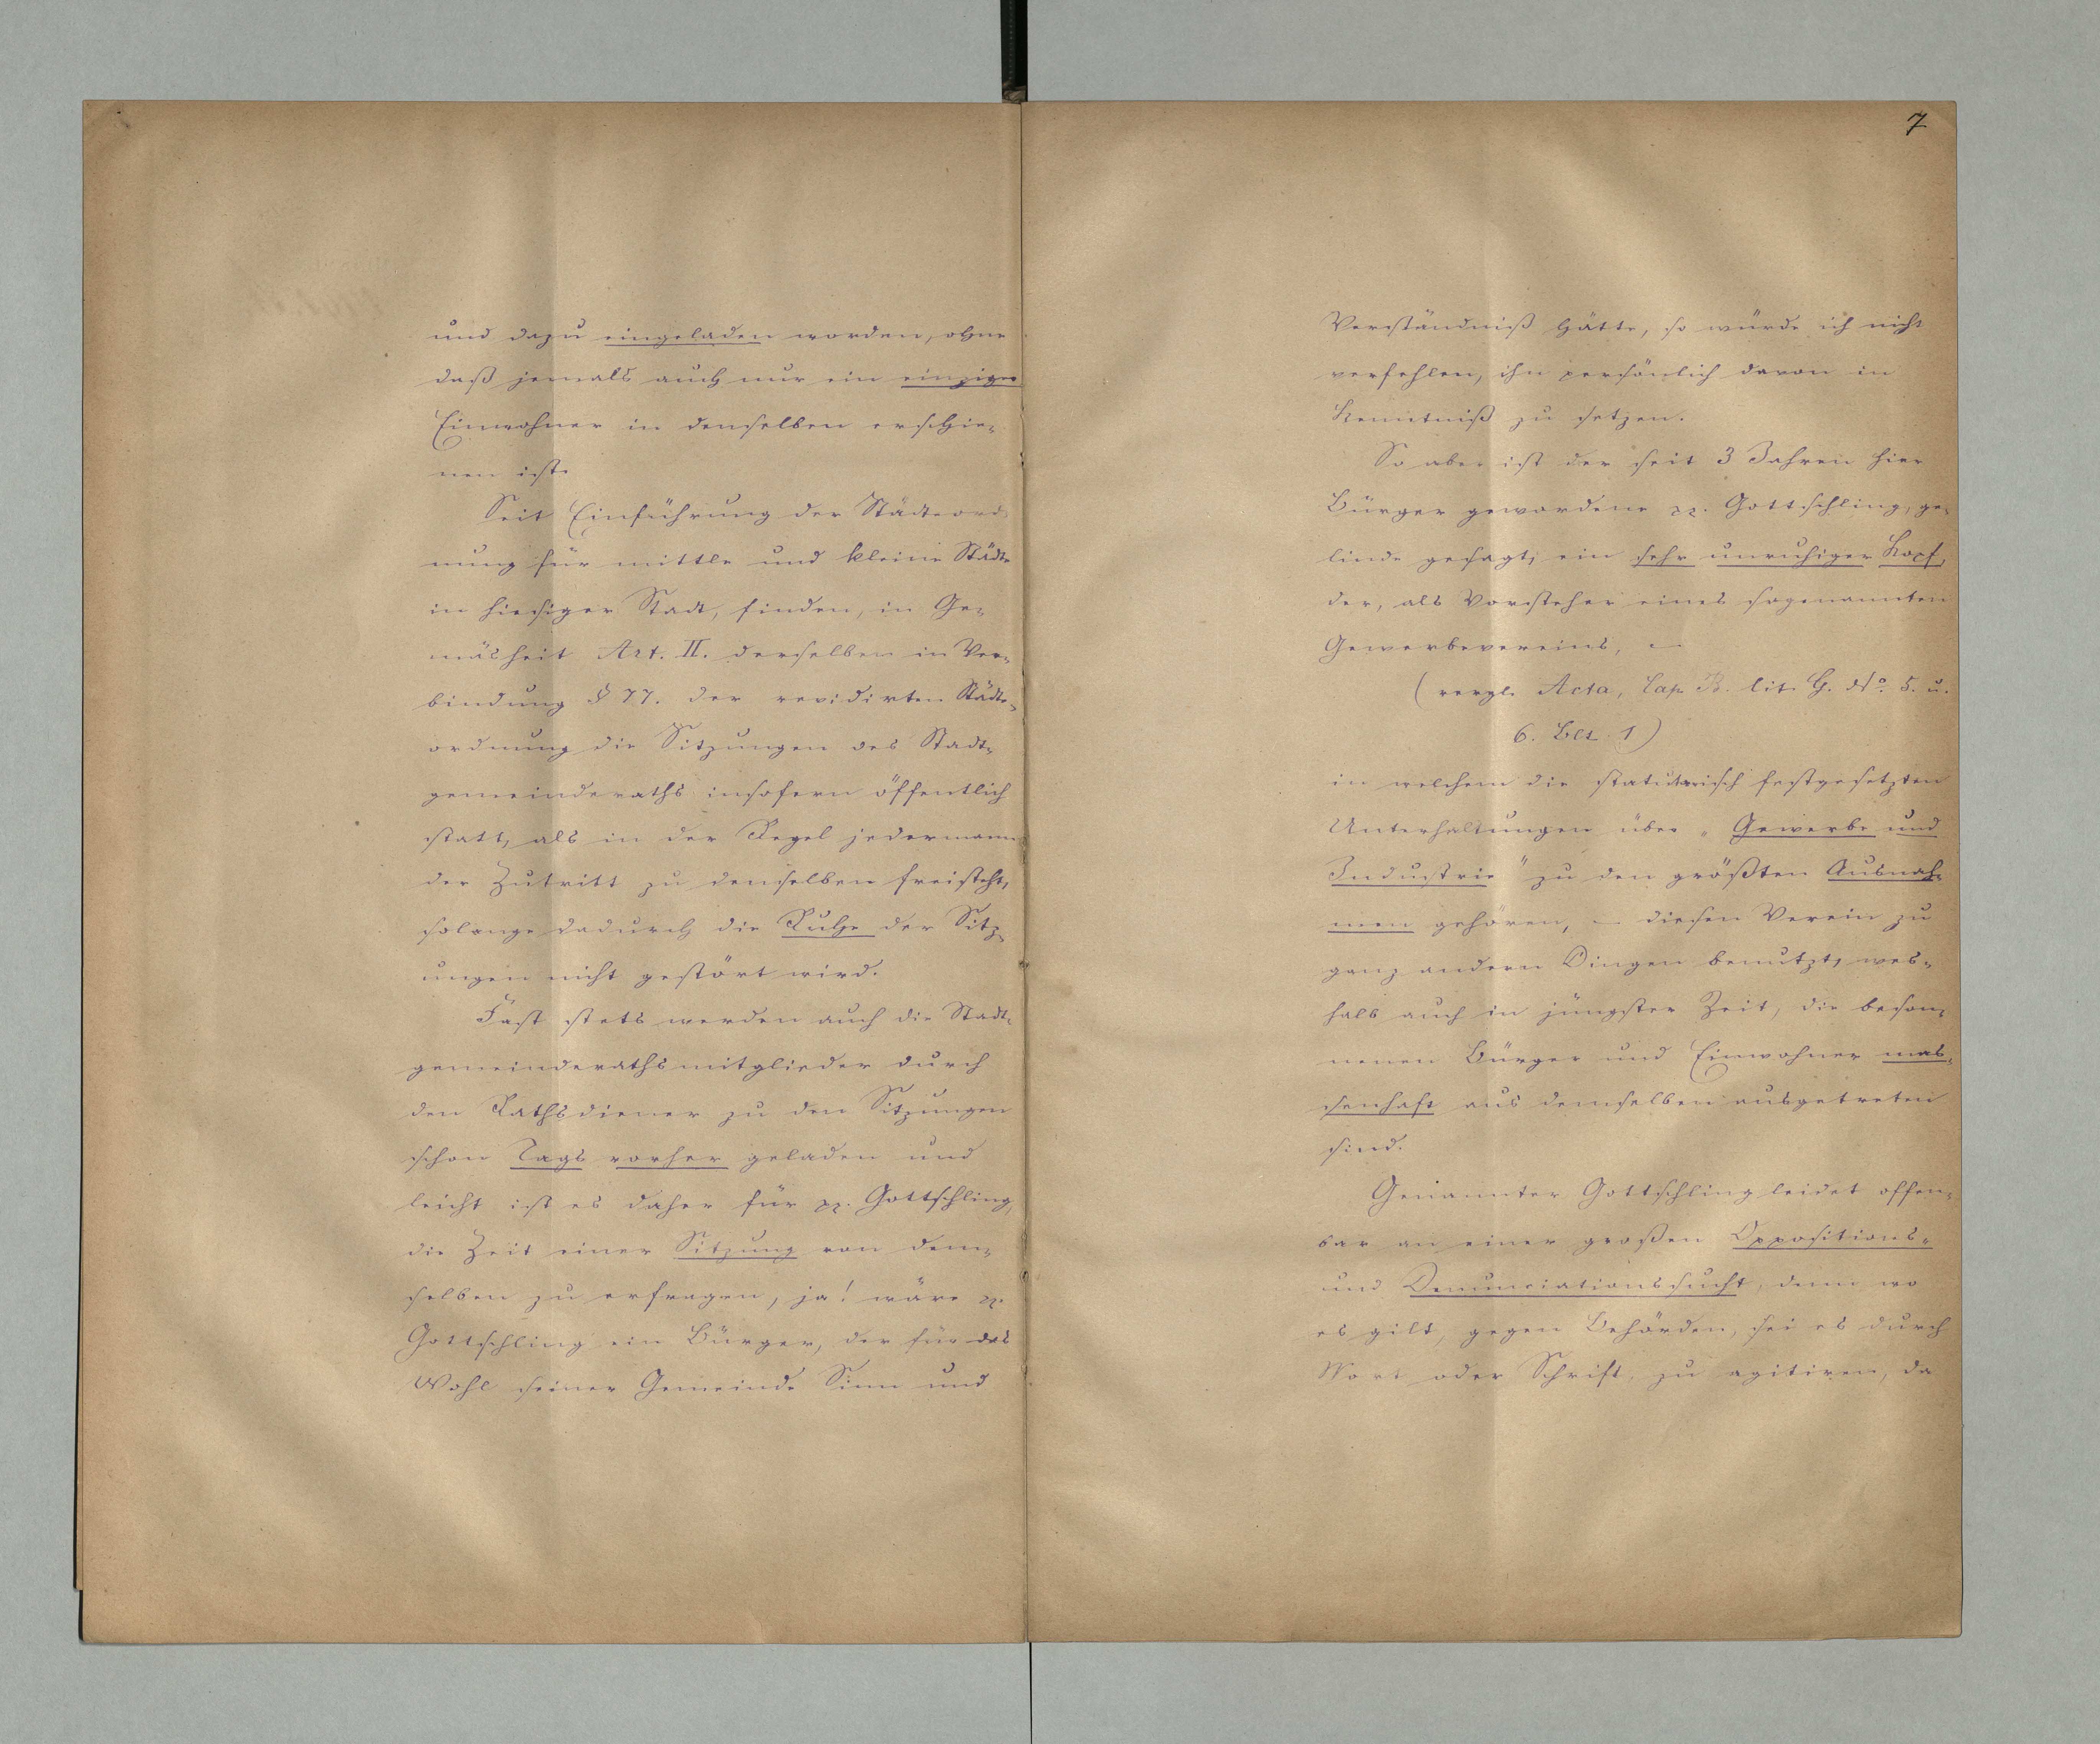 und dazu eingeladen worden, ohne
daß jemals auch nur ein einziger
Einwohner in denselben erschie-
nen ist.
Seit Einführung der Städteord-
nung für mittle und kleine Städte
in hiesiger Stadt, finden, in Ge-
mäsheit Art. II. derselben in Ver-
bindung § 77. der revidirten Städte-
ordnung die Sitzungen des Stadt-
gemeinderaths insofern öffentlich
statt, als in der Regel jedermann
der Zutritt zu denselben freisteht,
solange dadurch die Ruhe der Sitz-
ungen nicht gestört wird.
Fast stets werden auch die Stadt-
gemeinderathsmitglieder durch
den Rathsdiener zu den Sitzungen
schon Tags vorher geladen und
leicht ist es daher für pp. Gottschling,
die Zeit einer Sitzung von dem-
selben zu erfragen, ja! wäre pp.
Gottschling ein Bürger, der für das
Wohl seiner Gemeinde Sinn und
7
Verständniß hätte, so würde ich nicht
verfehlen, ihn persönlich davon in
Kenntniß zu setzen.
So aber ist der seit 3 Jahren hier
Bürger gewordene pp. Gottschling, ge-
linde gesagt, ein sehr unruhiger Kopf,
der, als Vorsteher eines sogenannten
Gewerbevereins, –
(vergl. Acta, Cap. B. lit. G. No. 5. u.
6. Bl. 1)
in welchem die statutarisch festgesetzten
Unterhaltungen über „Gewerbe und
Industrie" zu den größten Ausnah-
men gehören, – diesen Verein zu
ganz andern Dingen benutzt, wes-
halb auch in jüngster Zeit, die beson-
nenen Bürger und Einwohner mas-
senhaft aus demselben ausgetreten
sind.
Genannter Gottschling leidet offen-
bar an einer großen Oppositions-
und Denunciationssucht, denn wo
es gilt, gegen Behörden, sei es durch
Wort oder Schrift, zu agitiren, da